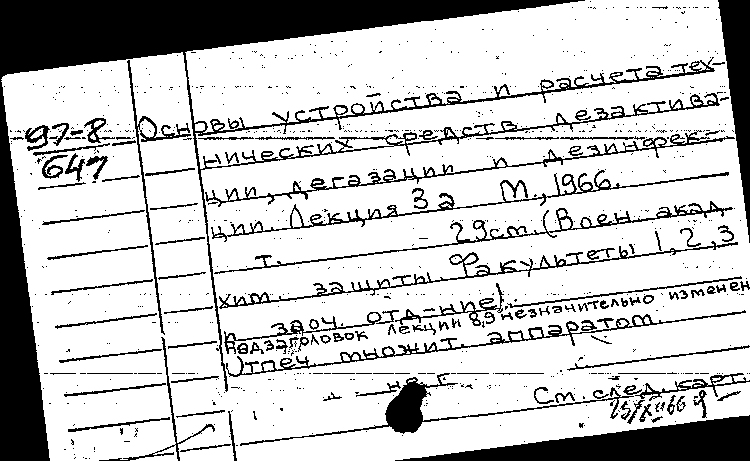 97-8
647
Основы устройства и расчета тех-
нических средств дезактива-
ции, дегазации и дезинфек-
ции. Лекция 3а М., 1966.
т. - 29 см. (Воен. акад.
хим. защиты. Факультеты 1, 2, 3
и заоч. отд-ние).
Надзаголовок лекции 8,9 незначительно изменен
Отпеч. множит. аппаратом.
См. след. карт.